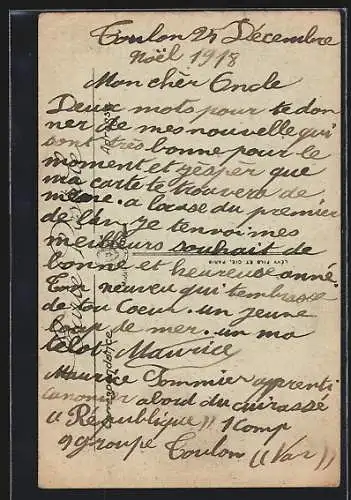 Toulon 24 Décembre
Noël 1918
Mon chèr Oncle
Deux mots pour te don
ner de mes nouvelle qui
sont très bonne pour le
moment et j'éspèr que
ma carte te trouvera de
même. a locase du premier
de l'an Je tenvoi mes
meilleurs souhait de
bonne et heureuse anné.
Ton neuveu qui t'embrasse
de tou Coeur. un jeune
loup de mer. un ma
telot Maurice
Maurice Sommier apprenti
canonier abord du cuirassé
"République" 1 Comp
9 groupe Toulon (Var)
Correspondance
Adresse
LÉVY FILS ET CIE, PARIS